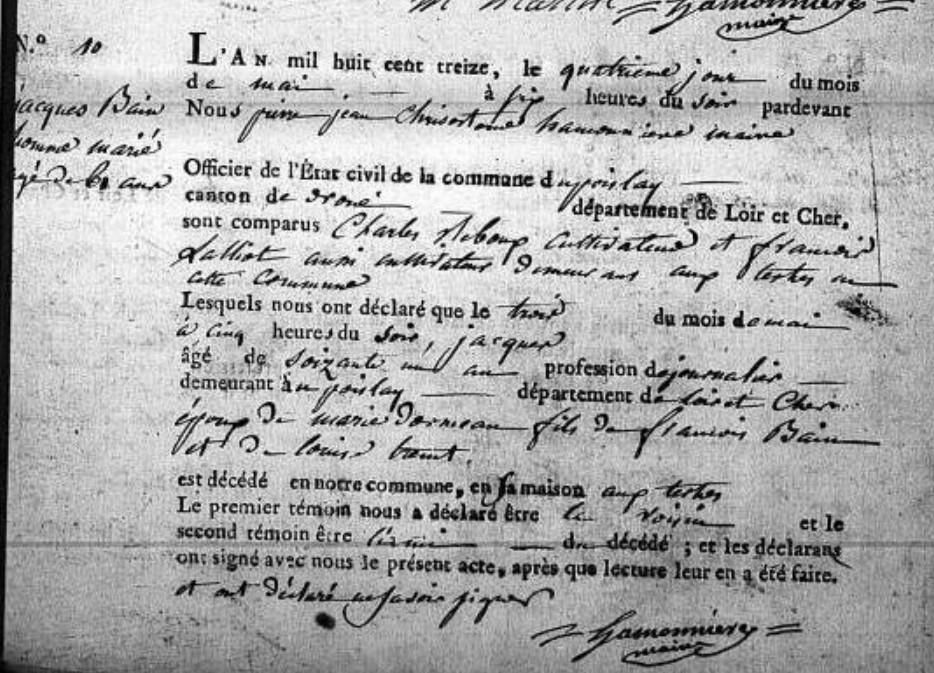 M Martin = hamonnière =
maire
N.° 10
jacques Bain
homme marié
agé de 61 ans
L'AN mil huit cent treize, le quatrieme jour du mois
de mai à six heures du soir pardevant
Nous pierre jean Chrisostome hamonniere maire
Officier de l'État civil de la commune du poislay
canton de droué département de Loir et Cher,
sont comparus Charles cultivateur et francois
aussi cultivateur demeurans aux tertres en
cette Commune
Lesquels nous ont déclaré que le trois du mois de mai
à cinq heures du soir, jacques
âgé de soizante un an profession de journalier
demeurant au poislay département de loir et Cher
époux de marie dormeau fils de francois Bain
et de louise
est décédé en notre commune, en sa maison aux tertres
Le premier témoin nous a déclaré être le voisin et le
second témoin être l'ami du décédé ; et les déclarans
ont signé avec nous le présent acte, après que lecture leur en a été faite.
et ont déclaré ne savoir signer
= hamonnière =
maire